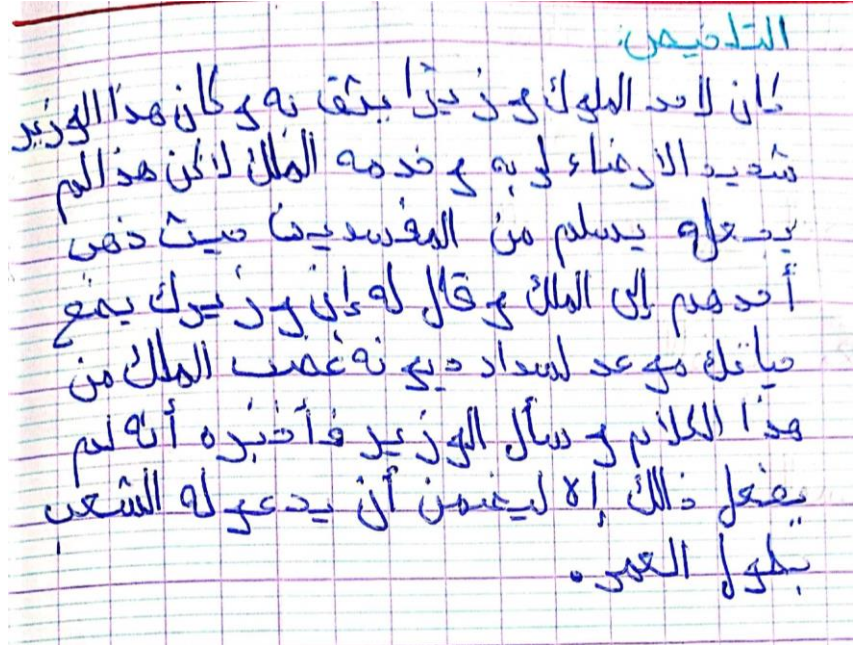 التلخيص:
كان لاحد الملوك وزيرًا يثق به وكان هذا الوزير
شديد الارضاء لربه وخدمه الملك لاكن هذا لم
يجعله يسلم من المفسدين حيث ذهب
أحدهم إلى الملك وقال له إن وزيرك يضع
حياتك موعد لسداد ديونه غضب الملك من
هذا الكلام وسأل الوزير فأخبره أنه لم
يفعل ذالك إلا ليضمن أن يدعو له الشعب
بطول العمر.